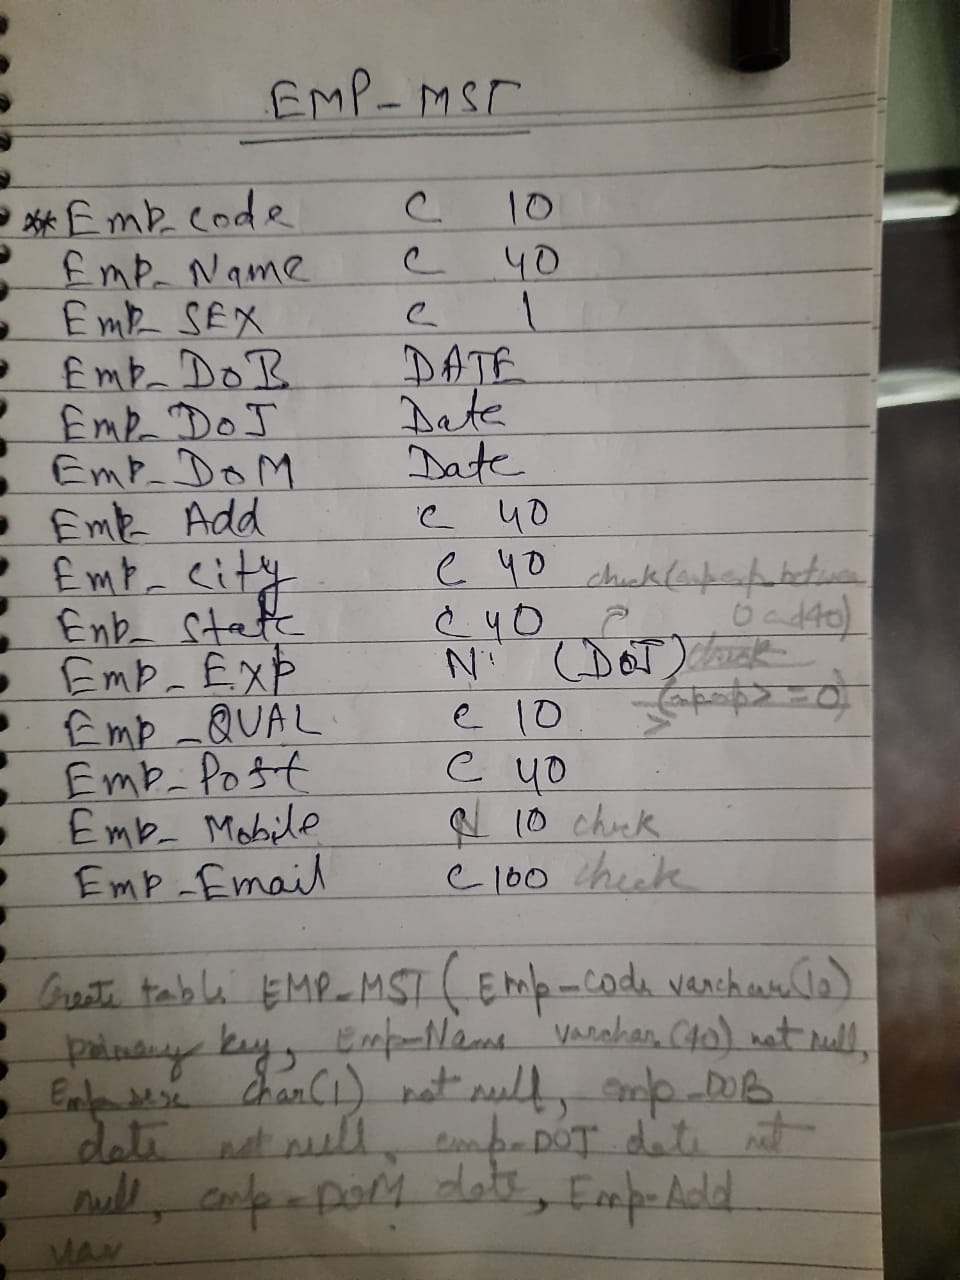 EMP-MST
** Emp-code C 10
Emp-Name C 40
Emp-SEX C 1
Emp-DoB DATE
Emp-DoJ Date
Emp-DoM Date
Emp Add C 40
Emp-city C 40 check(emp exp between
Emp-State C 40 0 and 40)
Emp-Exp N (DOJ) check
(emp exp >= 0)
Emp-QUAL C 10
Emp-Post C 40
Emp-Mobile N 10 check
Emp-Email C 100 check
Create table EMP-MST ( Emp-Code varchar(10)
primary key, Emp-Name varchar(40) not null,
Emp sex char(1) not null, emp-DOB
date not null, emp-DOJ date not
null, emp-DOM date, Emp-Add
var